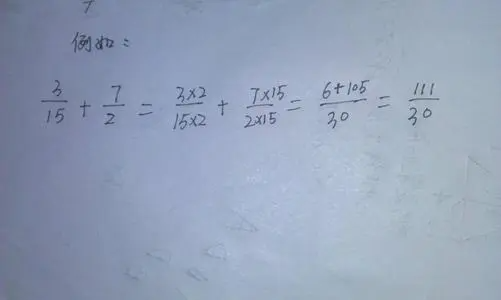 例如：
3/15 + 7/2 = 3×2/15×2 + 7×15/2×15 = 6+105/30 = 111/30